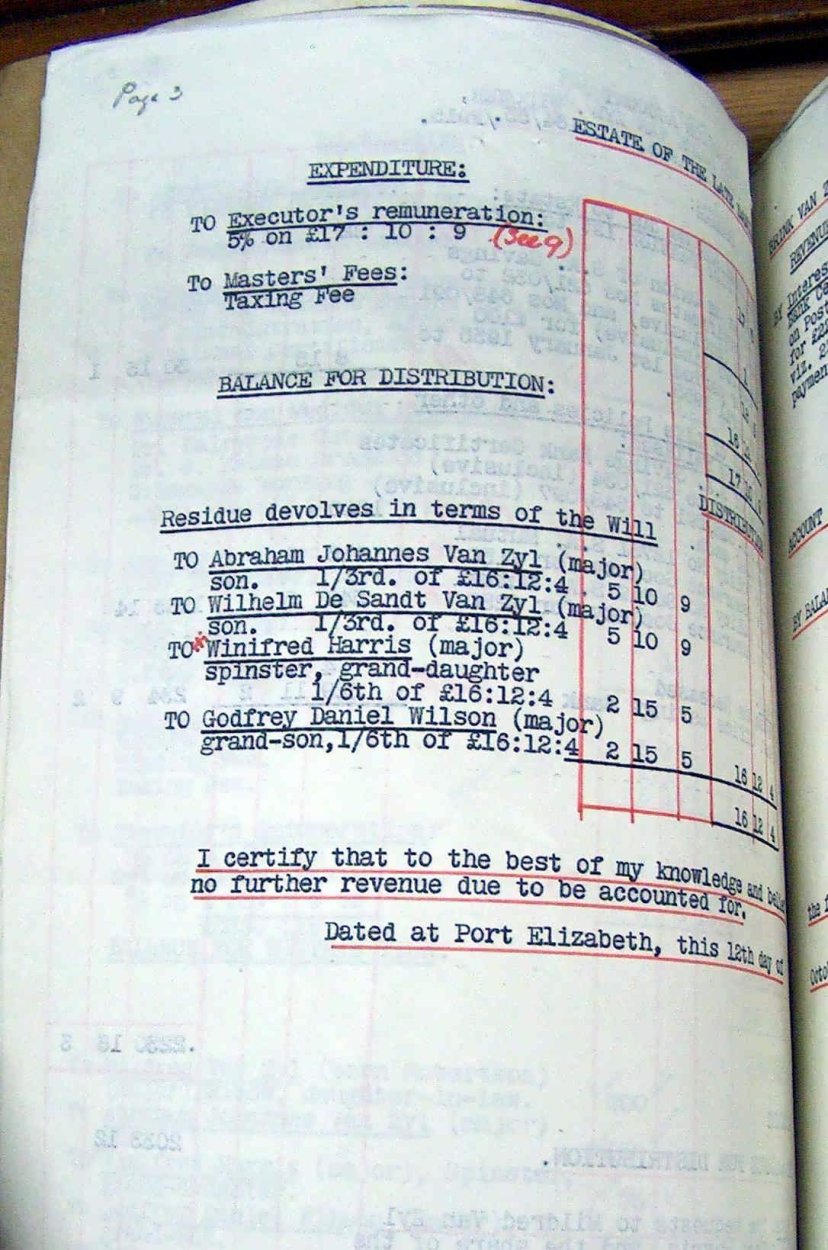 Page 3
ESTATE OF THE LATE
EXPENDITURE:
TO Executor's remuneration:
5% on £17 : 10 : 9 (See 9)
To Masters' Fees:
Taxing Fee
BALANCE FOR DISTRIBUTION:
DISTRIBUTION
Residue devolves in terms of the Will
TO Abraham Johannes Van Zyl (major)
son. 1/3rd. of £16:12:4 5 10 9
TO Wilhelm De Sandt Van Zyl (major)
son. 1/3rd. of £16:12:4 5 10 9
TO Winifred Harris (major)
spinster, grand-daughter
1/6th of £16:12:4 2 15 5
TO Godfrey Daniel Wilson (major)
grand-son, 1/6th of £16:12:4 2 15 5 16 12 4
16 12 4
I certify that to the best of my knowledge and
no further revenue due to be accounted for.
Dated at Port Elizabeth, this 12th day of